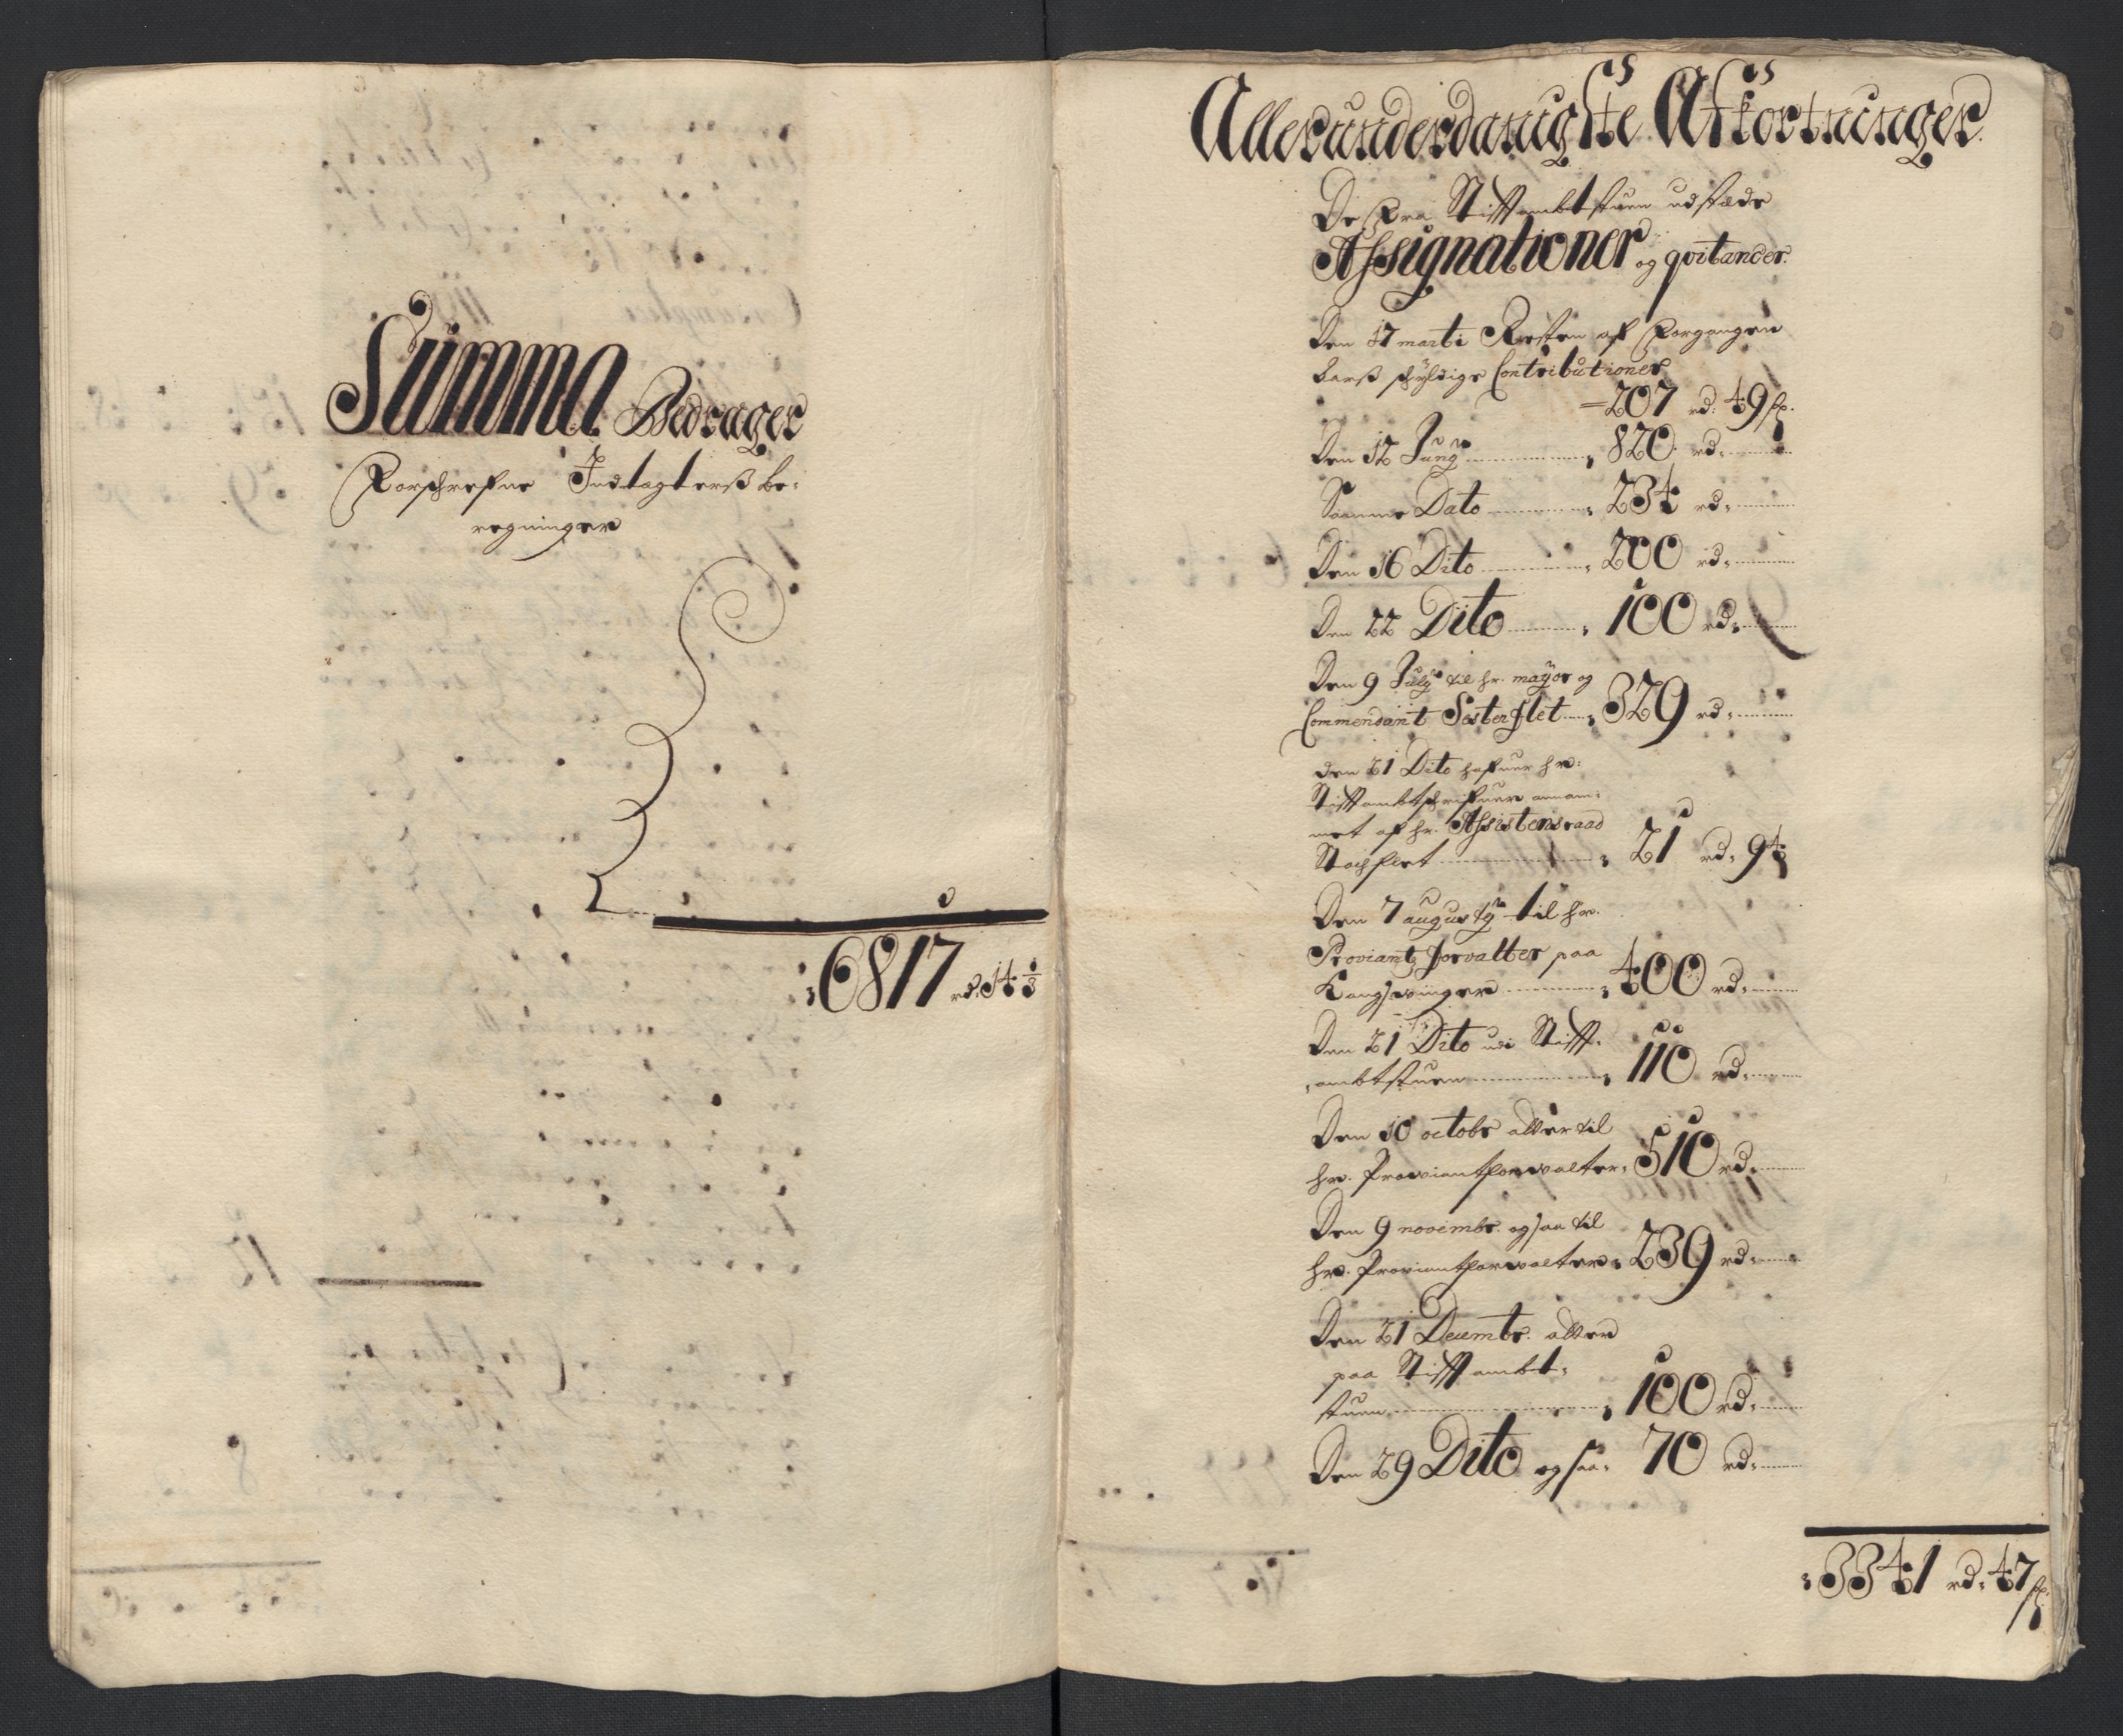 Summa Bedrager
Forschrefne Indtagterß be:
regninger
6817 rd: 14 1/3
Allerunderdanigste Afkortninger.
De Fra Stiftambtstuen udstæde
Assignationer og qvitancer.
Den 17 marti Resten af Forgangen
Aarß schyldige Contributioner
207 rd: 49 s.
Den 12 Juny 820 rd:
Samme Dato 234 rd:
Den 16 Dito 200 rd:
Den 22 Dito 100 rd:
Den 9 July til hr. mayor og
Commendant Sesterflet 329 rd:
den 21 Dito hafuer hr:
Stiftambtschrifuer annam:
met af hr. Assistensraad
Stochflet 21 rd: 94
Den 7 augusty til hr.
Proviantz forvalter paa
Kongswinger 400 rd:
Den 21 Dito udi Stift:
ambtstuen 110 rd:
Den 10 octobr atter til
hr. Proviantforvalter: 510 rd:
Den 9 novembr. ogsaa til
hr. Proviantforvalter: 239 rd:
Den 21 Decembr. atter
paa Stiftambt:
stuen 100 rd:
Den 29 Dito ogsaa: 70 rd:
3341 rd: 47 s.